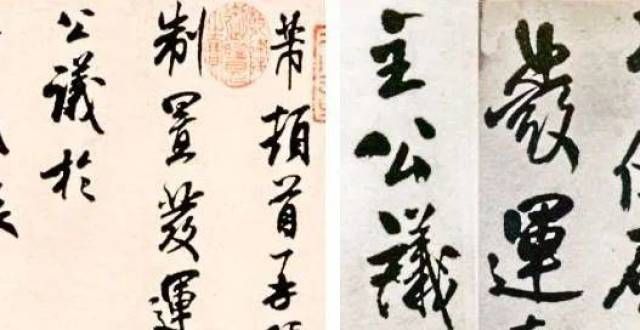 芾頓首再
制置發運
公議於
發運
主公議